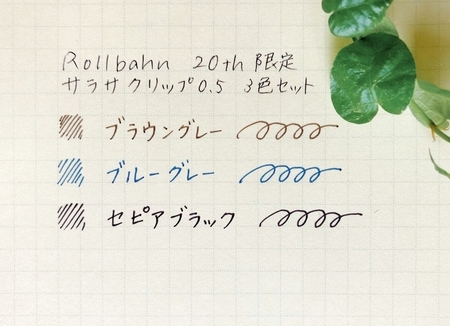 Rollbahn 20th 限定
サラサクリップ0.5 3色セット
ブラウングレー
ブルーグレー
セピアブラック